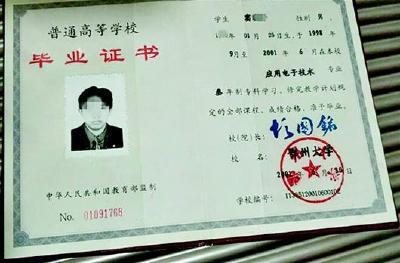 普通高等学校
毕业证书
中华人民共和国教育部监制
No. 01091768
学生 性别 男,
年 01 月 05 日生,于 1998 年
9 月至 2001 年 6 月在本校
应用电子技术 专业
叁年制专科学习,修完教学计划规
定的全部课程,成绩合格,准予毕业。
校(院)长:
州大学
学校编号: